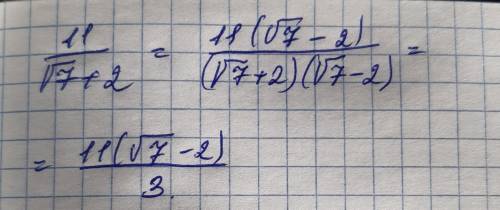 11/(√7+2) = 11(√7-2)/((√7+2)(√7-2)) =
= 11(√7-2)/3.